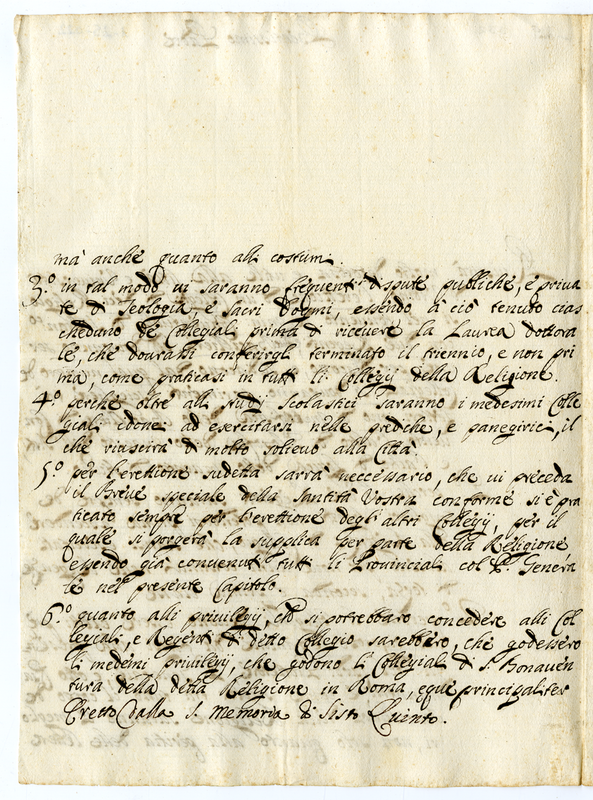 mà anche quanto alli costumi.
3.º in tal modo vi saranno frequenti dispute publiche, e priva
te di Teologia, e Sacri Dogmi, essendo à ciò tenuto cias
cheduno de Collegiali prima di ricevere la Laurea dottora
le, che dovrassi conferirgli terminato il triennio, e non pri
ma, come praticasi in tutti li Collegij della Religione.
4.º perche oltre alli studij scolastici saranno i medesimi Colle
giali idonei ad esercitarsi nelle prediche, e panegirici, il
che riuscirà di molto solievo alla Città.
5.º per l'erettione sudetta sarrà neccessario, che vi preceda
il Breve speciale della Santità Vostra conforme si è pra
ticato sempre per l'erettione degl'altri Collegij, per il
quale si porgerà la supplica per parte della Religione
essendo già convenuti tutti li Provinciali col P. Genera
le nel presente Capitolo.
6.º quanto alli privilegij, che si potrebbaro concedere alli Col
legiali, e Regenti di detto Collegio sarebbero, che godessero
li medemi privilegij, che godono li Collegiali di S. Bonaven
tura della detta Religione in Roma, eque principaliter
Eretto dalla S. Memoria di Sisto Quinto.